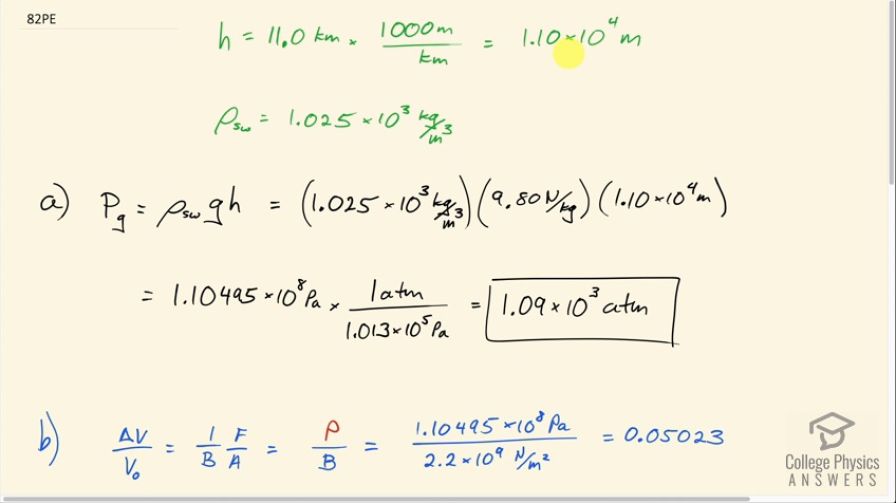 82PE
h = 11.0 km × 1000m/km = 1.10×10⁴ m
ρ_sw = 1.025×10³ kg/m³
a) P_g = ρ_sw g h = (1.025×10³ kg/m³)(9.80 N/kg)(1.10×10⁴ m)
= 1.10495×10⁸ Pa × 1 atm/1.013×10⁵ Pa = 1.09×10³ atm
b) ΔV/V₀ = 1/B F/A = P/B = 1.10495×10⁸ Pa/2.2×10⁹ N/m² = 0.05023
College Physics
ANSWERS